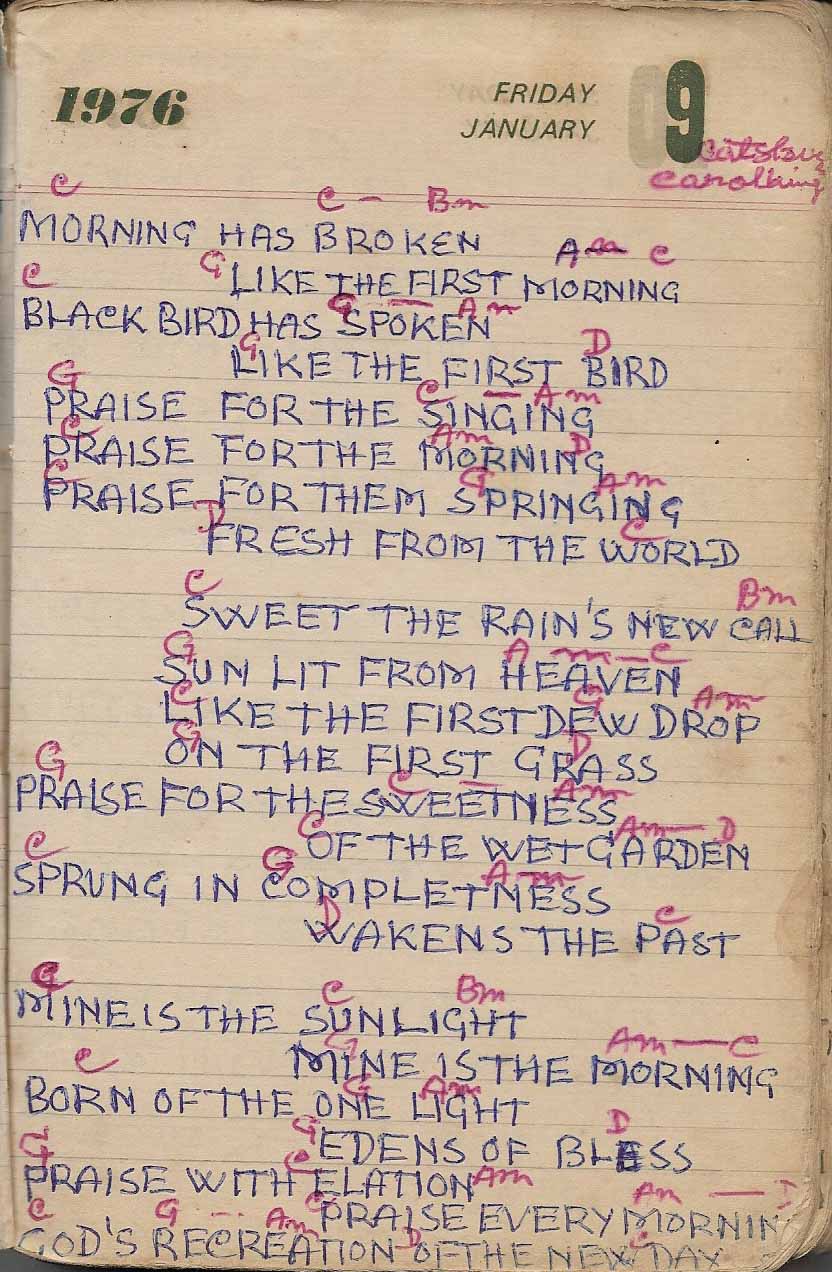 1976 FRIDAY 9
JANUARY
C C - Bm
MORNING HAS BROKEN
G Am C
LIKE THE FIRST MORNING
C G — Am
BLACK BIRD HAS SPOKEN
G D
LIKE THE FIRST BIRD
G C — Am
PRAISE FOR THE SINGING
C Am D
PRAISE FOR THE MORNING
C G Am
PRAISE FOR THEM SPRINGING
D C
FRESH FROM THE WORLD
C Bm
SWEET THE RAIN'S NEW CALL
G Am — C
SUN LIT FROM HEAVEN
C G Am
LIKE THE FIRST DEW DROP
G D
ON THE FIRST GRASS
G C — Am
PRAISE FOR THE SWEETNESS
C Am — D
OF THE WET GARDEN
C G Am
SPRUNG IN COMPLETNESS
D C
WAKENS THE PAST
C C Bm
MINE IS THE SUNLIGHT
G Am — C
MINE IS THE MORNING
C G Am
BORN OF THE ONE LIGHT
G D
EDENS OF BLESS
G C Am
PRAISE WITH ELATION
C Am —
PRAISE EVERY MORNIN
C G Am D C
GOD'S RECREATION OF THE NEW DAY